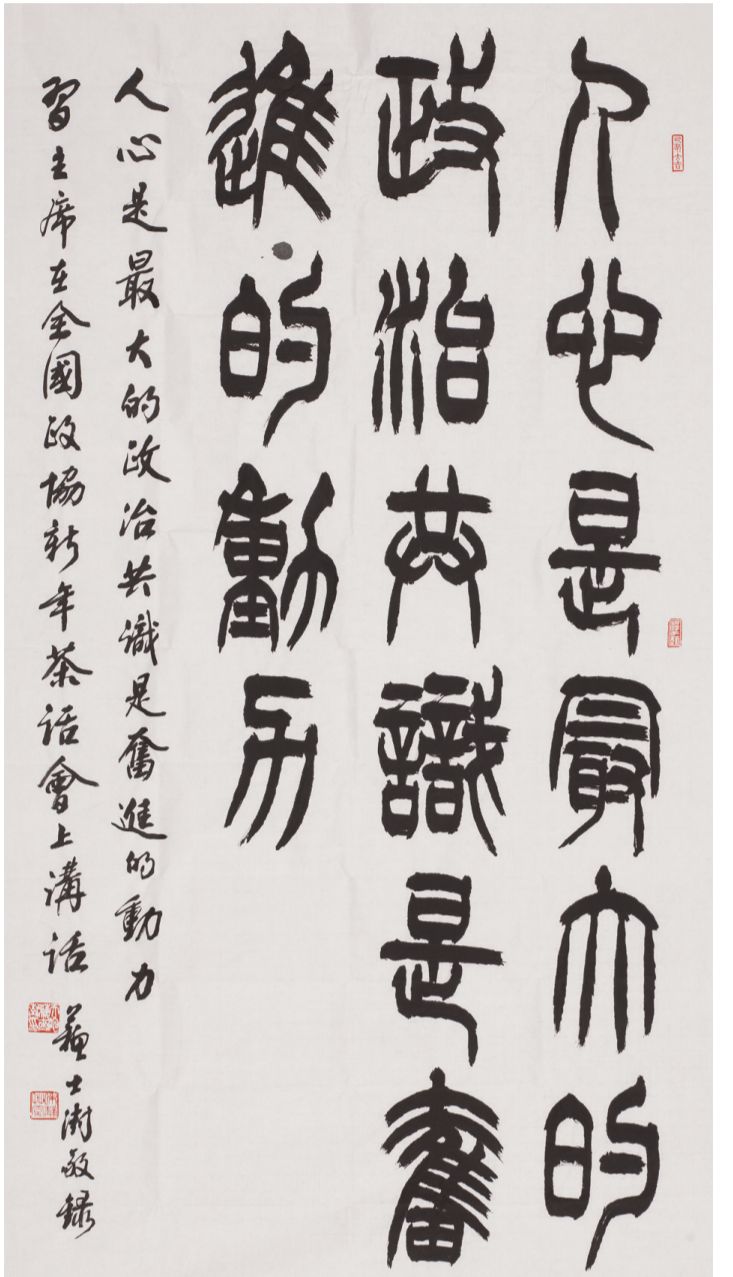 人心是最大的
政治共識是奮
進的動力
人心是最大的政治共識是奮進的動力
習主席在全國政協新年茶話會上講話
蘇士澍敬錄